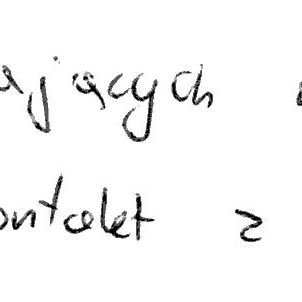 ających
ontakt z